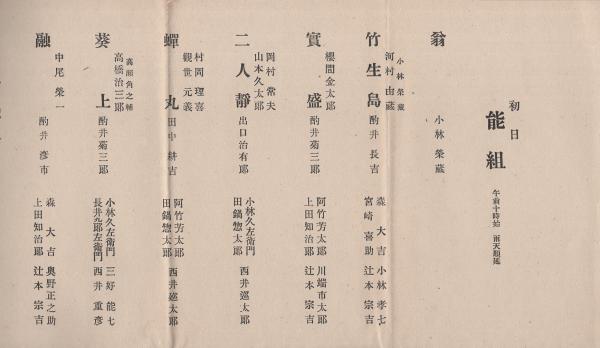 初日
能組
午前十時始 雨天順延
翁
小林榮藏
小林榮藏
竹生島
河村由藏
酌井長吉
森大吉 小林孝七
宮崎喜助 辻本宗吉
實盛
櫻間金太郎
酌井菊三郎
阿竹芳太郎 川端市太郎
上田知治郎 辻本宗吉
二人靜
岡村常夫
山本久太郎
出口治有郎
小林久左衛門
田鍋惣太郎
西井巡太郎
蟬丸
村岡理喜
觀世元義
田中耕吉
阿竹芳太郎
田鍋惣太郎
西井巡太郎
葵上
高瀬角之輔
高橋治三郎
酌井菊三郎
小林久左衛門 三好能七
長井九郎左衛門 西井重彥
融
中尾榮一
酌井彥市
森大吉 奧野正之助
上田知治郎 辻本宗吉